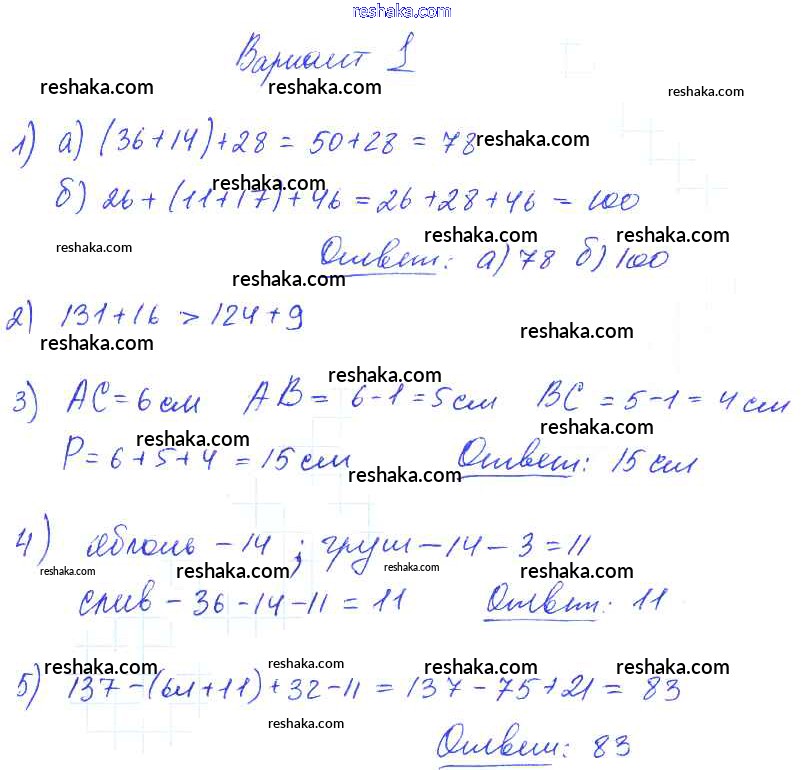 reshaka.com
Вариант 1
reshaka.com reshaka.com reshaka.com
1) а) (36+14)+28 = 50+28 = 78
reshaka.com
б) 26+(11+17)+46 = 26+28+46 = 100
reshaka.com
reshaka.com reshaka.com reshaka.com
Ответ: а) 78 б) 100
reshaka.com
2) 131+16 > 124+9
reshaka.com reshaka.com
reshaka.com
3) AC = 6 см AB = 6-1 = 5 см BC = 5-1 = 4 см
reshaka.com reshaka.com
P = 6+5+4 = 15 см Ответ: 15 см
reshaka.com
4) яблонь - 14 ; груш - 14 - 3 = 11
reshaka.com reshaka.com reshaka.com reshaka.com
слив - 36 - 14 - 11 = 11 Ответ: 11
reshaka.com reshaka.com reshaka.com reshaka.com
5) 137 - (64+11) + 32 - 11 = 137 - 75 + 21 = 83
reshaka.com
Ответ: 83